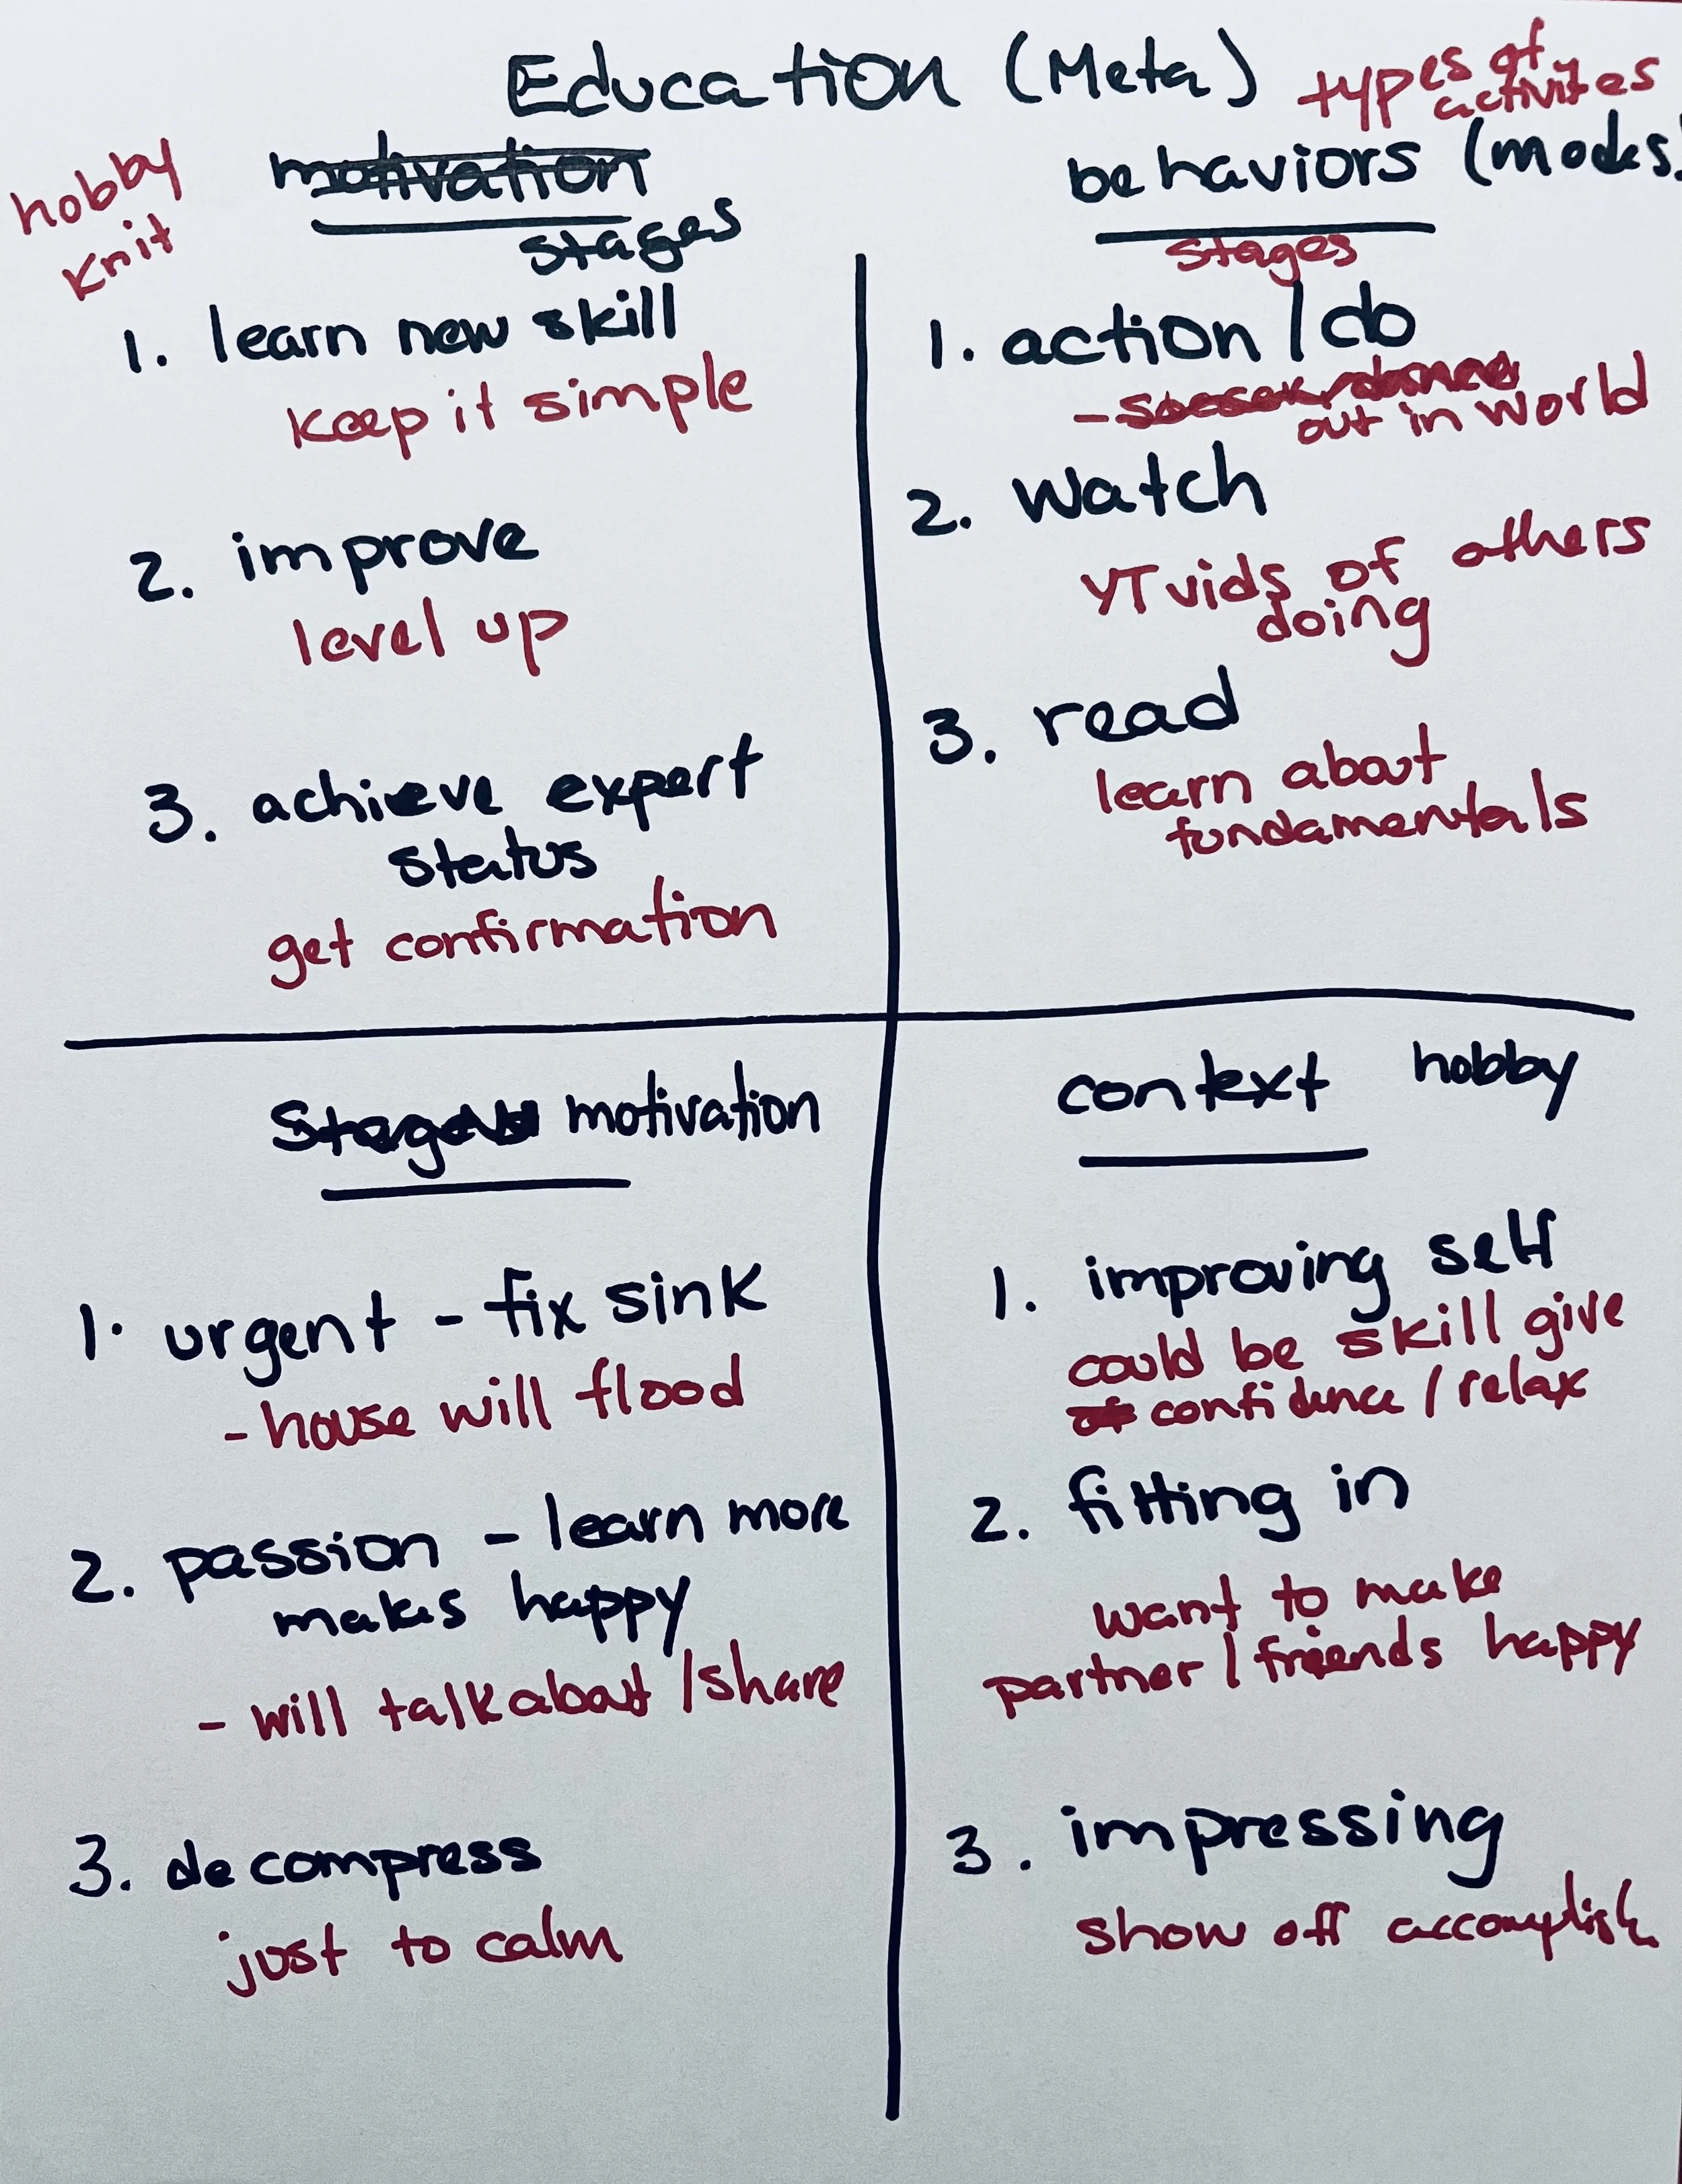 Education (Meta)
types of
activites
hobby
knit
motivation
stages
1. learn new skill
keep it simple
2. improve
level up
3. achieve expert
status
get confirmation
behaviors (modes)
stages
1. action / do
-
out in world
2. watch
YT vids of others
doing
3. read
learn about
fundamentals
Stages motivation
1. urgent - fix sink
- house will flood
2. passion - learn more
makes happy
- will talk about / share
3. decompress
just to calm
context hobby
1. improving self
could be skill give
confidence / relax
2. fitting in
want to make
partner / friends happy
3. impressing
show off accomplish